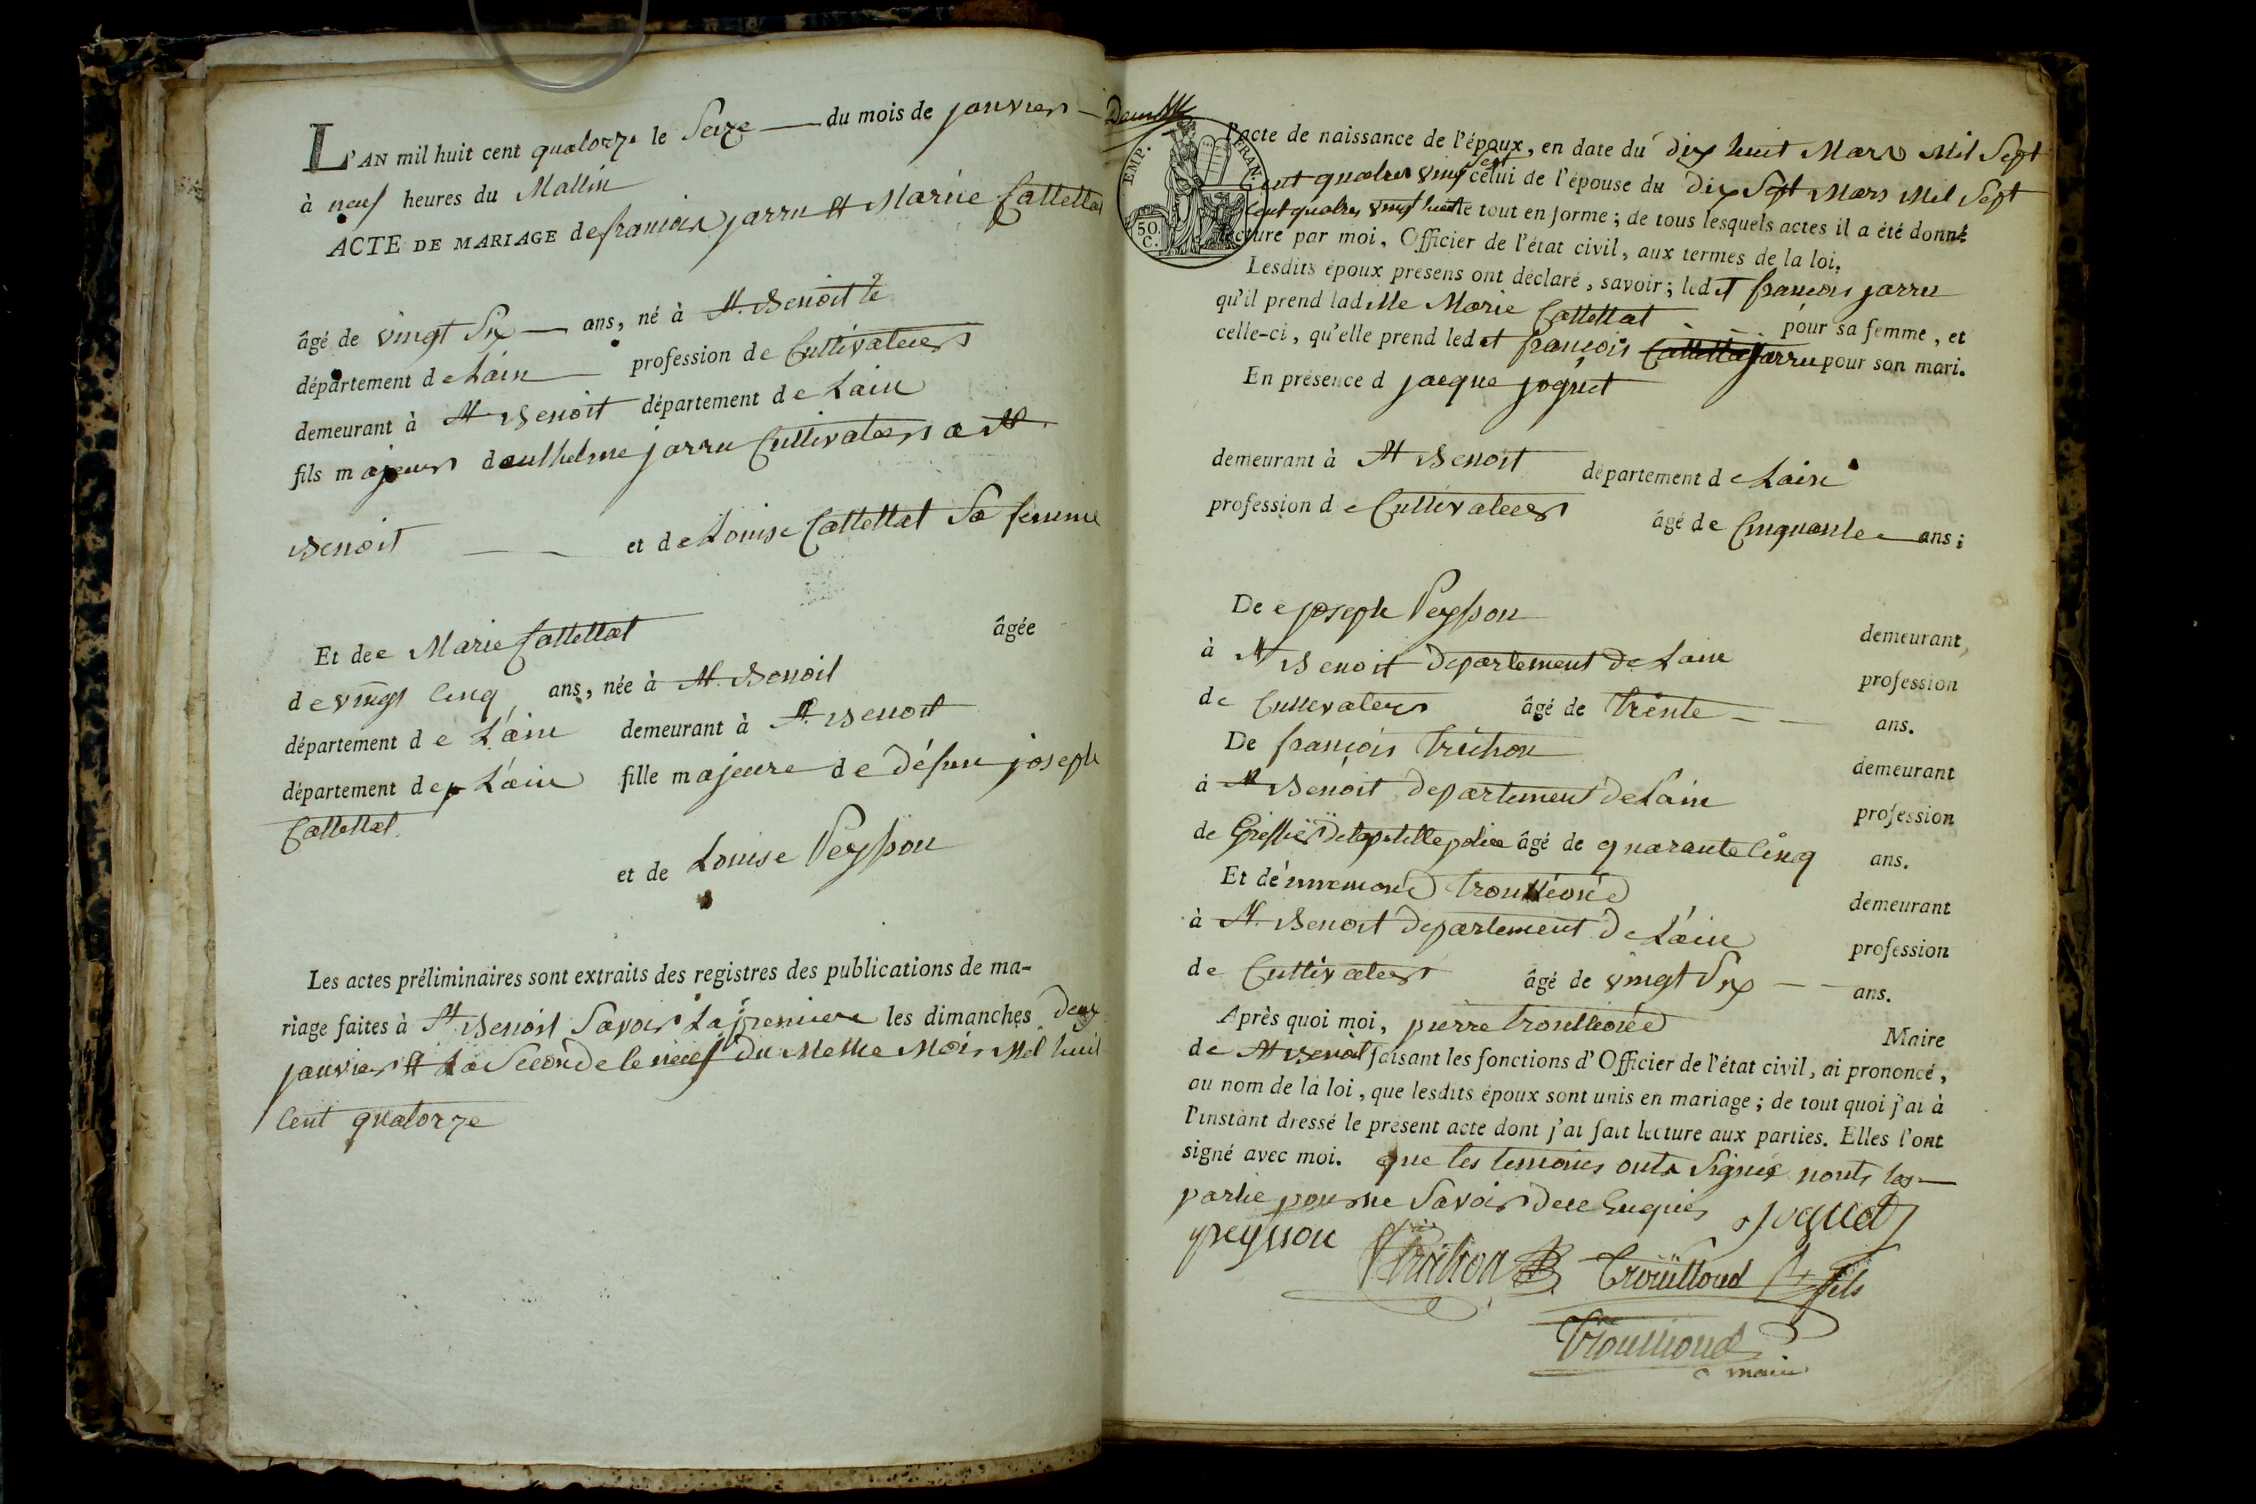 L'AN mil huit cent quatorze le Seize du mois de janvier
à neuf heures du Mattin
ACTE DE MARIAGE de francois jarru et Marie Cattellat
âgé de vingt Six ans, né à St. Benoit
département de Lain profession de Cultivateur
demeurant à St Benoit département de Lain
fils majeur danthelme jarru Cultivateur a St
Benoit et de Louise Cattellat Sa femme
Et de Marie Cattellat âgée
de vingt cinq ans, née à St. Benoit
département de L'ain demeurant à St. Benoit
département de L'ain fille majeure de défun joseph
Cattellat
et de Louise Peysson
Les actes préliminaires sont extraits des registres des publications de ma-
riage faites à St. Benoit Savoir La premiere les dimanches deux
janvier et La Seconde le neuf du Meme Mois Mil huit
Cent quatorze
EMP. FRAN.
50.
C.
l'acte de naissance de l'époux, en date du dix huit Mars Mil Sept
Cent quatre vingt Sept celui de l'épouse du dix Sept Mars Mil Sept
Cent quatre vingt huit le tout en forme ; de tous lesquels actes il a été donné
lecture par moi, Officier de l'état civil, aux termes de la loi.
Lesdits époux présens ont déclaré, savoir ; led it francois jarru
qu'il prend lad itte Marie Cattellat pour sa femme, et
celle-ci, qu'elle prend led it françois Cattellat jarru pour son mari.
En présence d jacque joguet
demeurant à St Benoit département de Lain
profession de Cultivateur âgé de Cinquante ans ;
De joseph Peysson demeurant
à St Benoit departement de Lain profession
de Cultivateur âgé de trente ans.
De françois truchon demeurant
à St Benoit departement de Lain profession
de Greffier de la petitte police âgé de quarante Cinq ans.
Et de demeurant
à St. Benoit departement de L'ain profession
de Cultivateur âgé de vingt Six ans.
Après quoi moi, pierre Maire
de St Benoit faisant les fonctions d'Officier de l'état civil, ai prononcé,
au nom de la loi, que lesdits époux sont unis en mariage ; de tout quoi j'ai à
l'instant dressé le présent acte dont j'ai fait lecture aux parties. Elles l'ont
signé avec moi. que les temoins onts Signés nonts les
partie pour ne Savoir de ce Enquis joguet
peysson Truchon Trouilloud fils
Trouilloud
maire